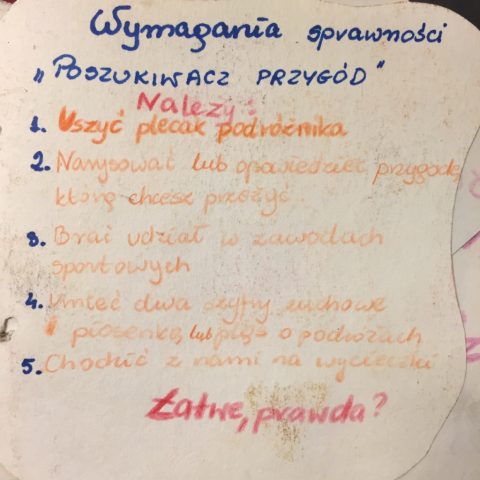 Wymagania sprawności
„POSZUKIWACZ PRZYGÓD"
Należy:
1. Uszyć plecak podróżnika
2. Narysować lub opowiedzieć przygodę,
którą chcesz przeżyć.
3. Brać udział w zawodach
sportowych
4. Umieć dwa szyfry zuchowe
i piosenkę lub pląs o podróżach
5. Chodzić z nami na wycieczki
Łatwe, prawda?